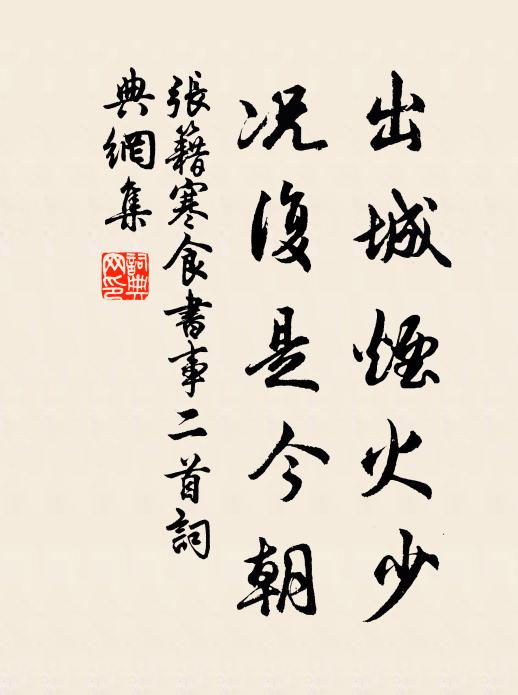 出城煙火少
況復是今朝
張籍寒食書事二首詞
典網集
詞典網印